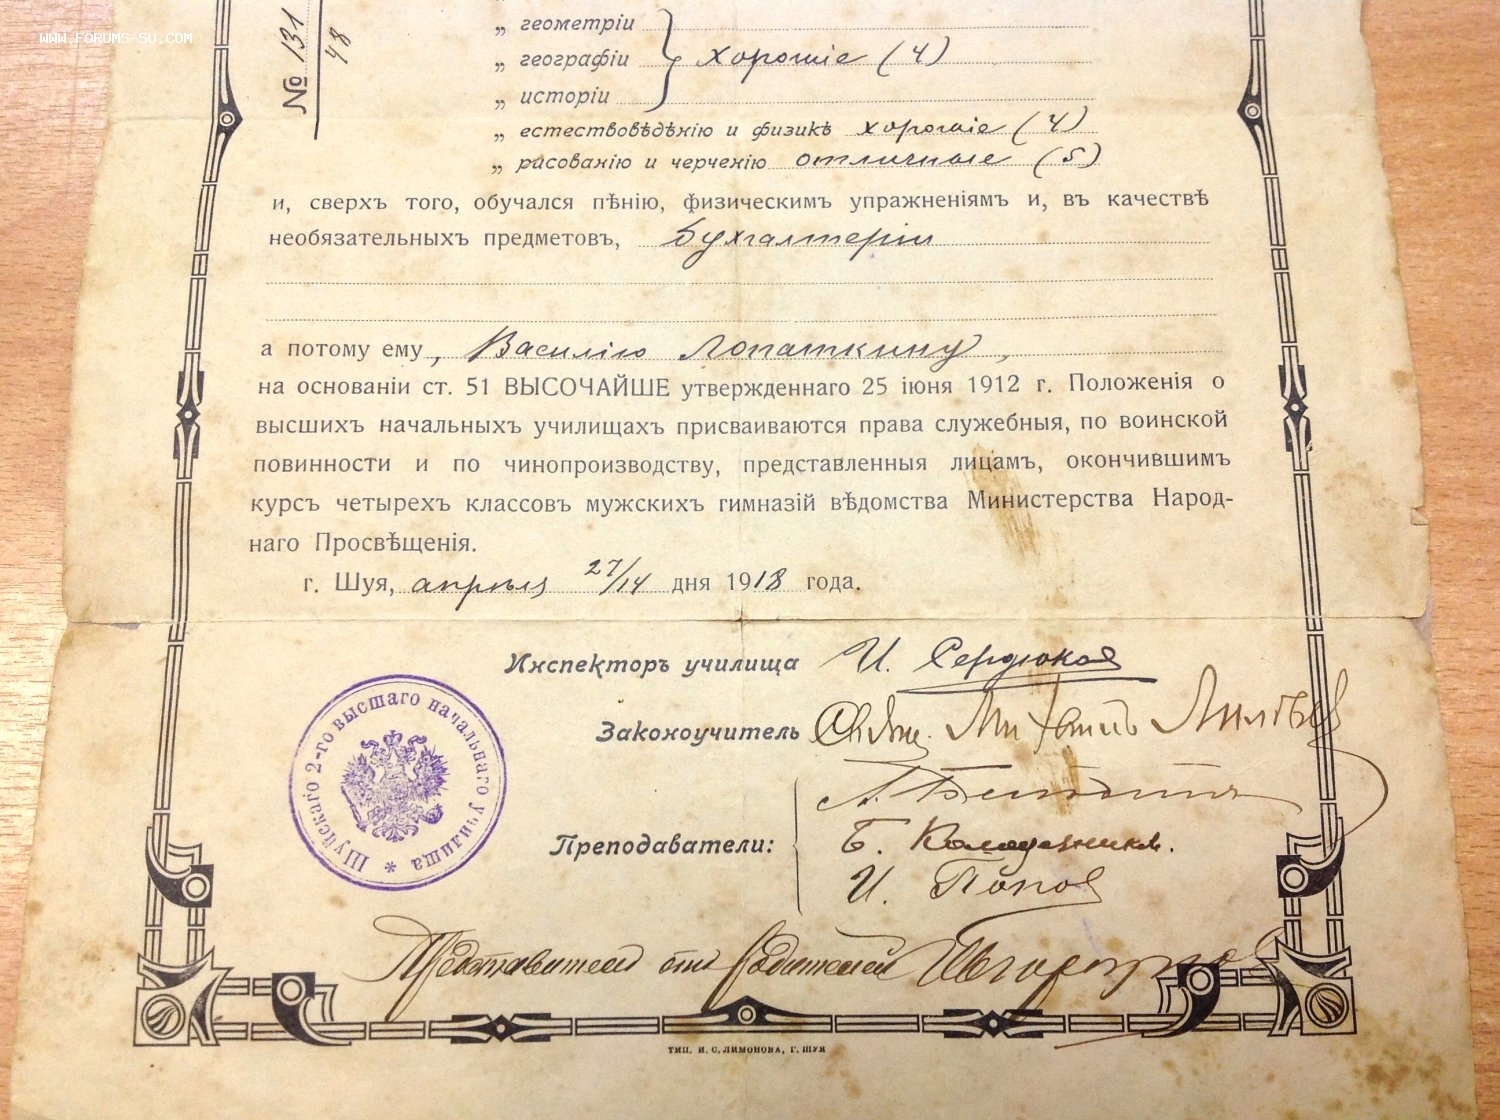 WWW.FORUMS-SU.COM
№ 131
48
„ геометріи
„ географіи } хорошіе (4)
„ исторіи
„ естествовѣдѣнію и физикѣ хорошіе (4)
„ рисованію и черченію отличные (5)
и, сверхъ того, обучался пѣнію, физическимъ упражненіямъ и, въ качествѣ
необязательныхъ предметовъ, бухгалтеріи
а потому ему, Василію Лопаткину,
на основаніи ст. 51 ВЫСОЧАЙШЕ утвержденнаго 25 іюня 1912 г. Положенія о
высшихъ начальныхъ училищахъ присваиваются права служебныя, по воинской
повинности и по чинопроизводству, представленныя лицамъ, окончившимъ
курсъ четырехъ классовъ мужскихъ гимназій вѣдомства Министерства Народ-
наго Просвѣщенія.
г. Шуя, апрѣля 27/14 дня 1918 года.
Инспекторъ училища И. Сердюковъ
Законоучитель Свящ. Михаилъ
Преподаватели:
Б.
И. Поповъ
Представитель отъ родителей
Шуйскаго 2-го высшаго начальнаго училища *
ТИП. И. С. ЛИМОНОВА, Г. ШУЯ